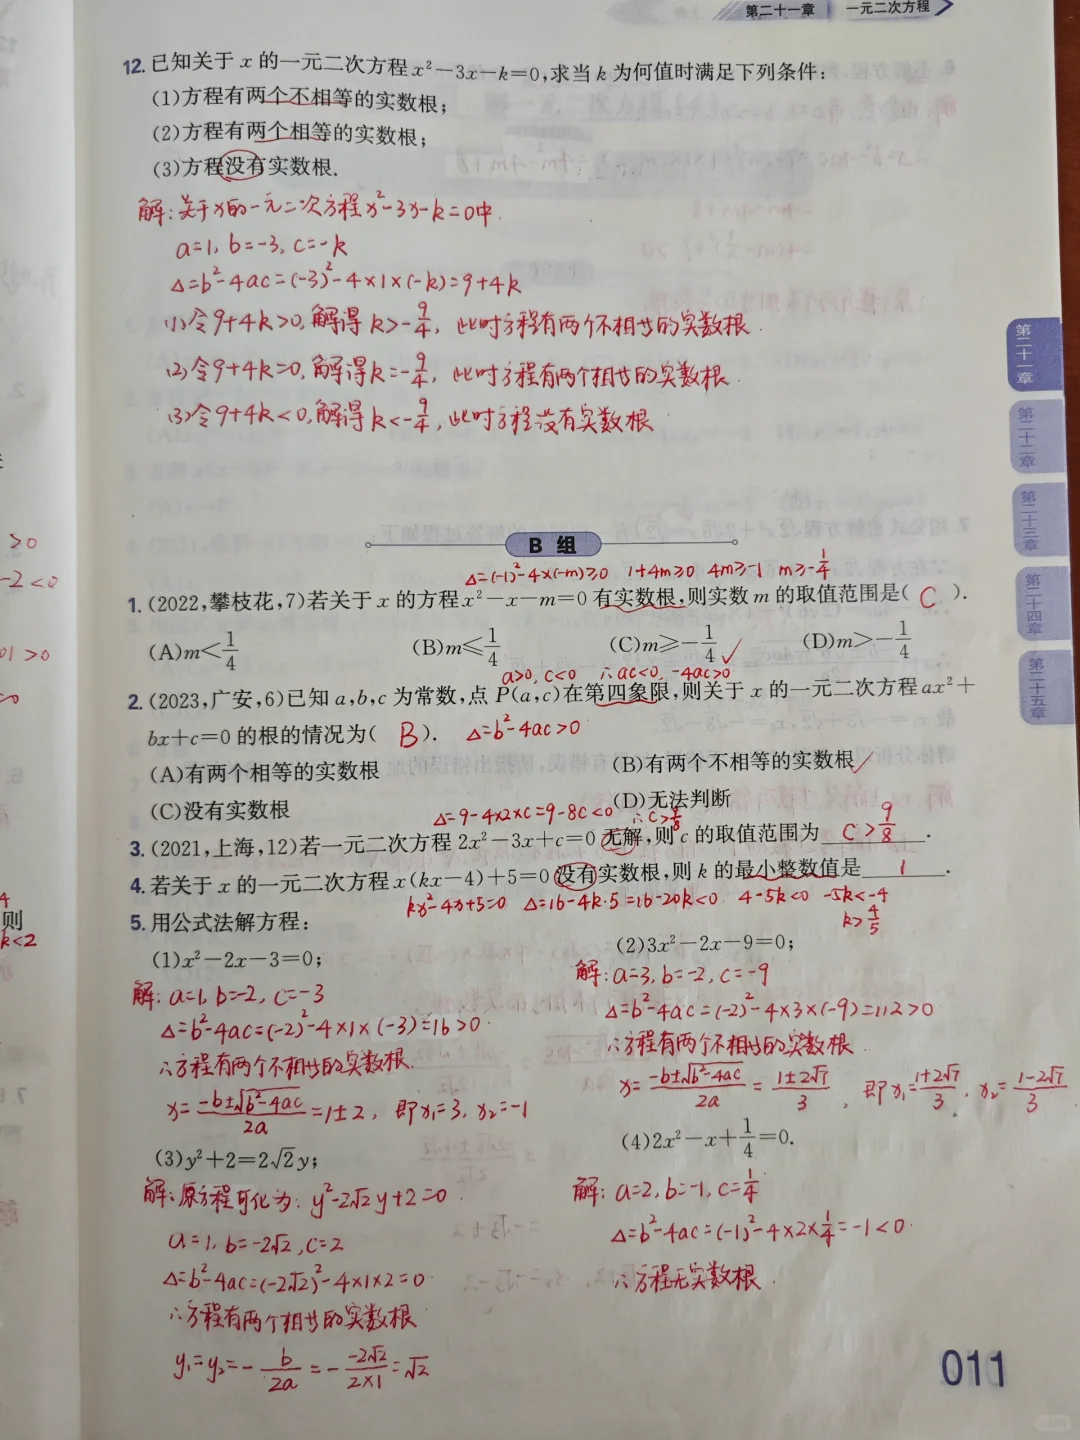 第二十一章 一元二次方程
12. 已知关于 x 的一元二次方程 x²-3x-k=0,求当 k 为何值时满足下列条件:
(1)方程有两个不相等的实数根;
(2)方程有两个相等的实数根;
(3)方程没有实数根.
解:关于x的一元二次方程x²-3x-k=0中.
a=1, b=-3, c=-k
△=b²-4ac=(-3)²-4×1×(-k)=9+4k
(1)令9+4k>0,解得k>-9/4, 此时方程有两个不相等的实数根.
(2)令9+4k=0,解得k=-9/4, 此时方程有两个相等的实数根.
(3)令9+4k<0,解得k<-9/4, 此时方程没有实数根
B 组
△=(-1)²-4×(-m)≥0 1+4m≥0 4m≥-1 m≥-1/4
1. (2022,攀枝花,7)若关于 x 的方程 x²-x-m=0 有实数根,则实数 m 的取值范围是( C ).
(A)m<1/4 (B)m≤1/4 (C)m≥-1/4 ✓ (D)m>-1/4
a>0, c<0 ∴ac<0, -4ac>0
2. (2023,广安,6)已知 a,b,c 为常数,点 P(a,c)在第四象限,则关于 x 的一元二次方程 ax²+
bx+c=0 的根的情况为( B ). △=b²-4ac>0
(A)有两个相等的实数根 (B)有两个不相等的实数根 ✓
(C)没有实数根 (D)无法判断
△=9-4×2×c=9-8c<0 ∴c>9/8
3. (2021,上海,12)若一元二次方程 2x²-3x+c=0 无解,则 c 的取值范围为 c>9/8 .
4. 若关于 x 的一元二次方程 x(kx-4)+5=0 没有实数根,则 k 的最小整数值是 1 .
kx²-4x+5=0 △=16-4k·5=16-20k<0 4-5k<0 -5k<-4
k>4/5
5. 用公式法解方程:
(1)x²-2x-3=0;
解: a=1, b=-2, c=-3
△=b²-4ac=(-2)²-4×1×(-3)=16>0
∴方程有两个不相等的实数根.
x=(-b±√(b²-4ac))/2a=1±2, 即x₁=3, x₂=-1
(2)3x²-2x-9=0;
解: a=3, b=-2, c=-9
△=b²-4ac=(-2)²-4×3×(-9)=112>0
∴方程有两个不相等的实数根.
x=(-b±√(b²-4ac))/2a=(1±2√7)/3, 即x₁=(1+2√7)/3, x₂=(1-2√7)/3
(3)y²+2=2√2y;
解: 原方程可化为: y²-2√2y+2=0
a=1, b=-2√2, c=2
△=b²-4ac=(-2√2)²-4×1×2=0
∴方程有两个相等的实数根
y₁=y₂=-b/2a=-(-2√2)/(2×1)=√2
(4)2x²-x+1/4=0.
解: a=2, b=-1, c=1/4
△=b²-4ac=(-1)²-4×2×1/4=-1<0
∴方程无实数根.
011
第二十一章
第二十二章
第二十三章
第二十四章
第二十五章
>0
-2<0
>0
则
k<2